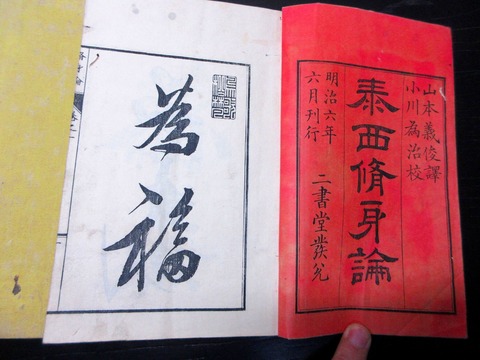 山本義俊譯
小川為治校
泰西脩身論
明治六年
六月刊行
二書堂發兌
為福